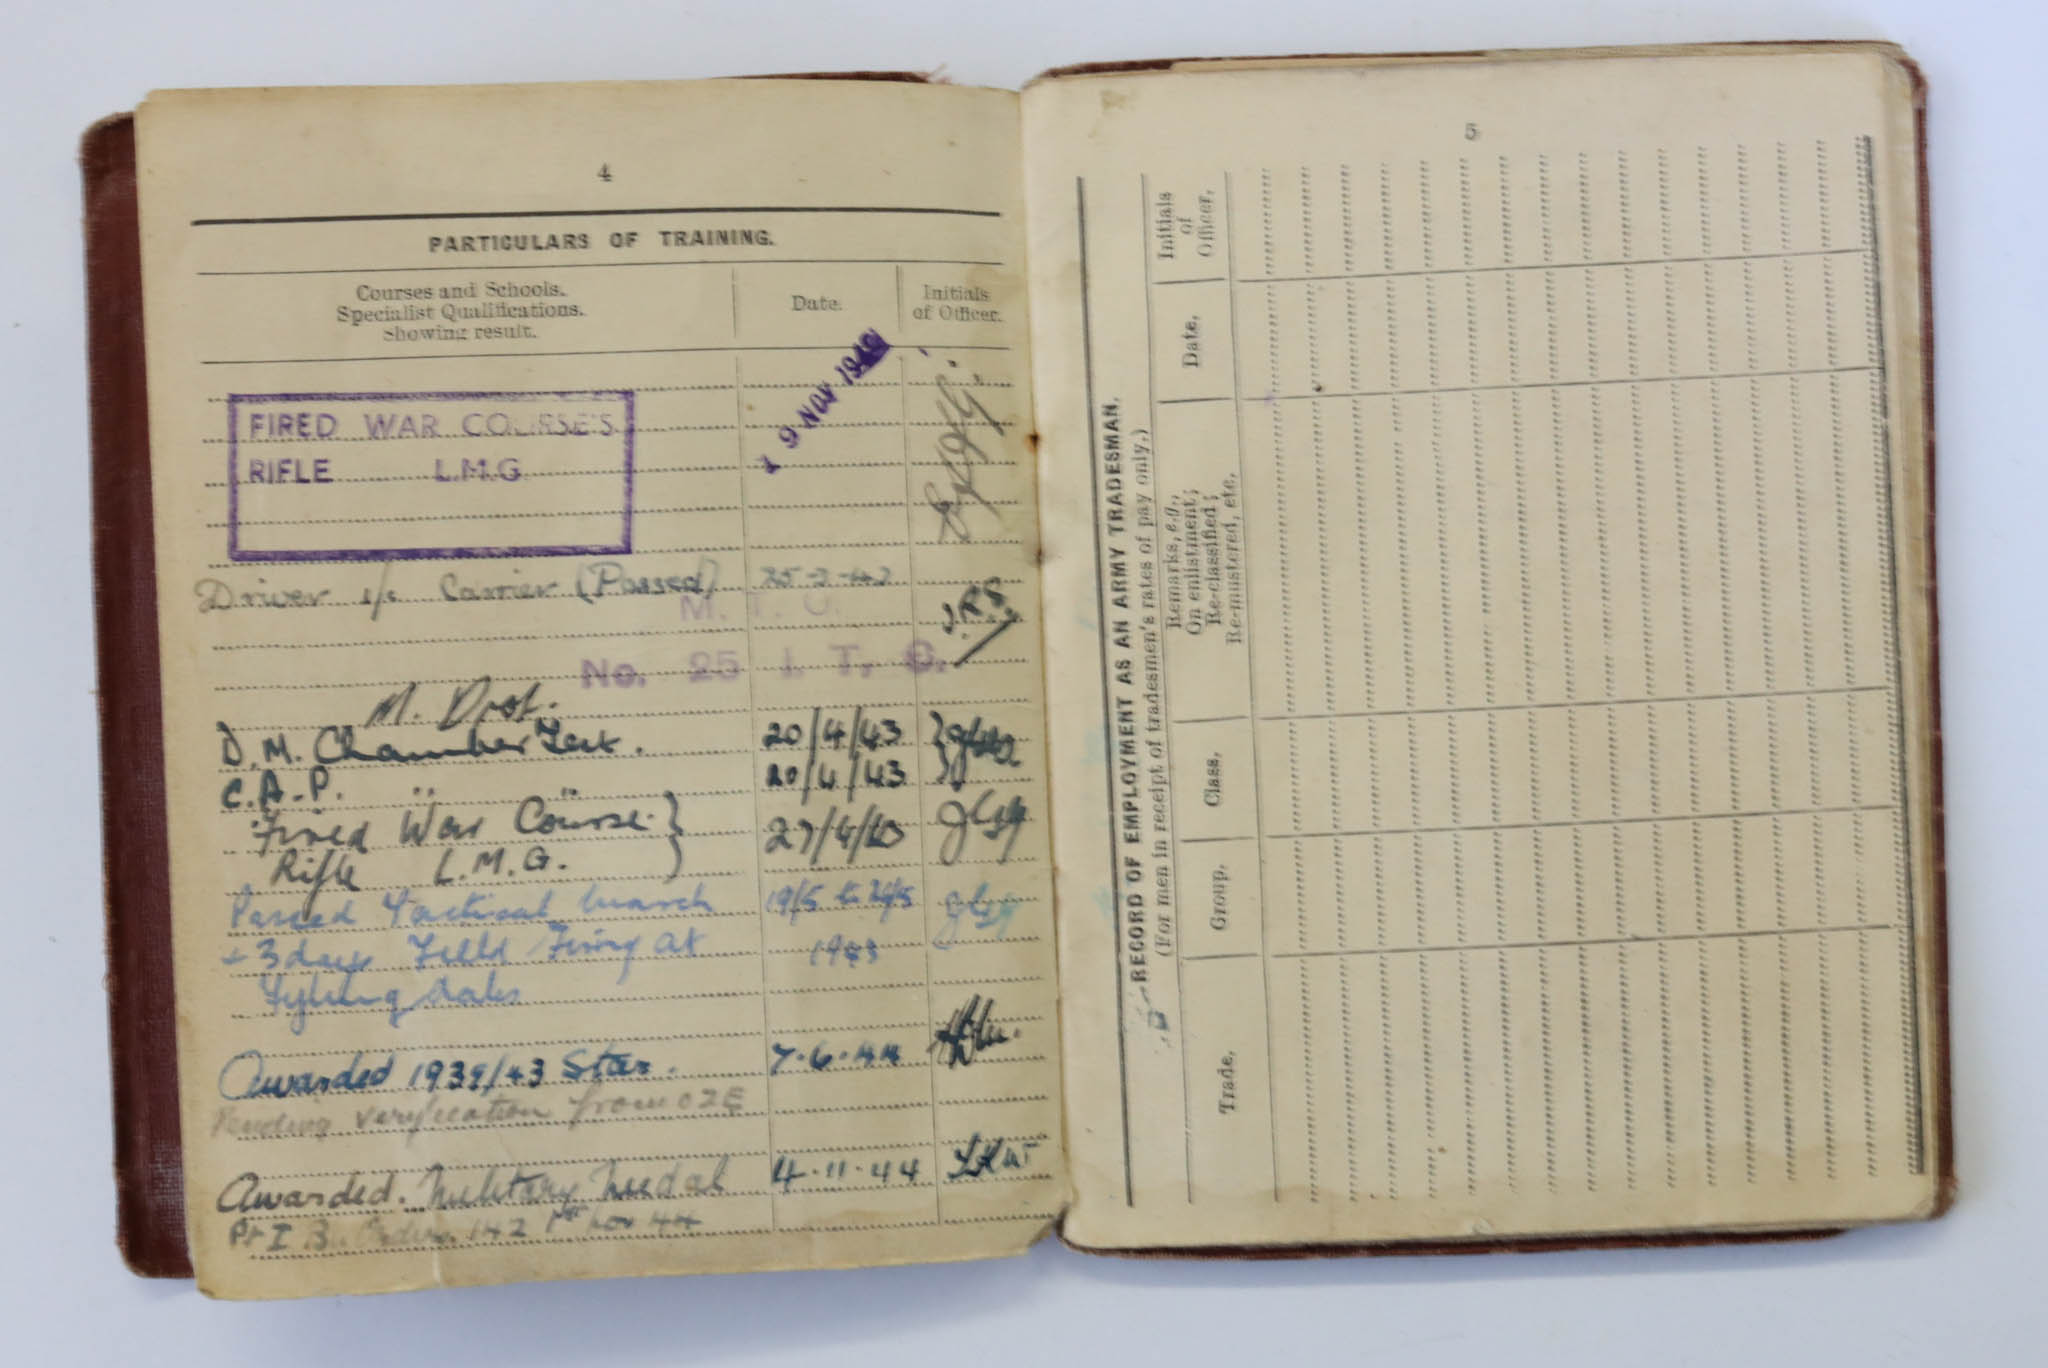 4
PARTICULARS OF TRAINING.
Courses and Schools.
Specialist Qualifications.
Showing result.
Date.
Initials
of Officer.
FIRED WAR COURSES
RIFLE L.M.G
9 Nov
Driver i/c Carrier (Passed) 25-3-43
M. T. C.
No. 25 I. T. C.
M. Prof.
D.M. Chamber Test. 20/4/43
C.A.P. " " 20/4/43
Fired War Course } 27/4/43
Rifle L.M.G.
Passed Tactical March 19/5 to 24/5
+ 3 days Field Firing at 1943
Awarded 1939/43 Star. 7.6.44
Pending verification from O2E
Awarded. Military Medal 4.11.44
Pt I Orders 142 1st Nov 44
5
RECORD OF EMPLOYMENT AS AN ARMY TRADESMAN.
(For men in receipt of tradesmen's rates of pay only.)
Trade.
Group.
Class.
Remarks, e.g.,
On enlistment;
Re-classified;
Re-mustered, etc.
Date.
Initials
of
Officer.